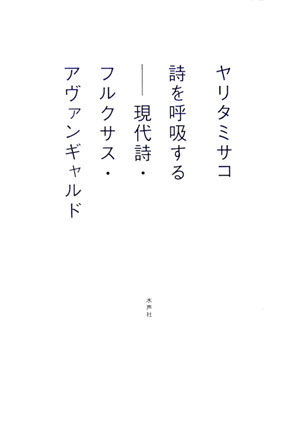 ヤリタミサコ
詩を呼吸する
──現代詩・
フルクサス・
アヴァンギャルド
水声社